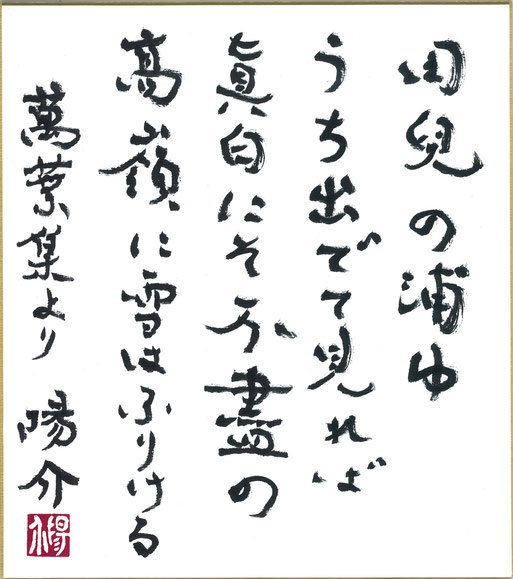 田兒の浦ゆ
うち出でて見れば
眞白にそ不盡の
高嶺に雪はふりける
萬葉集より 陽介